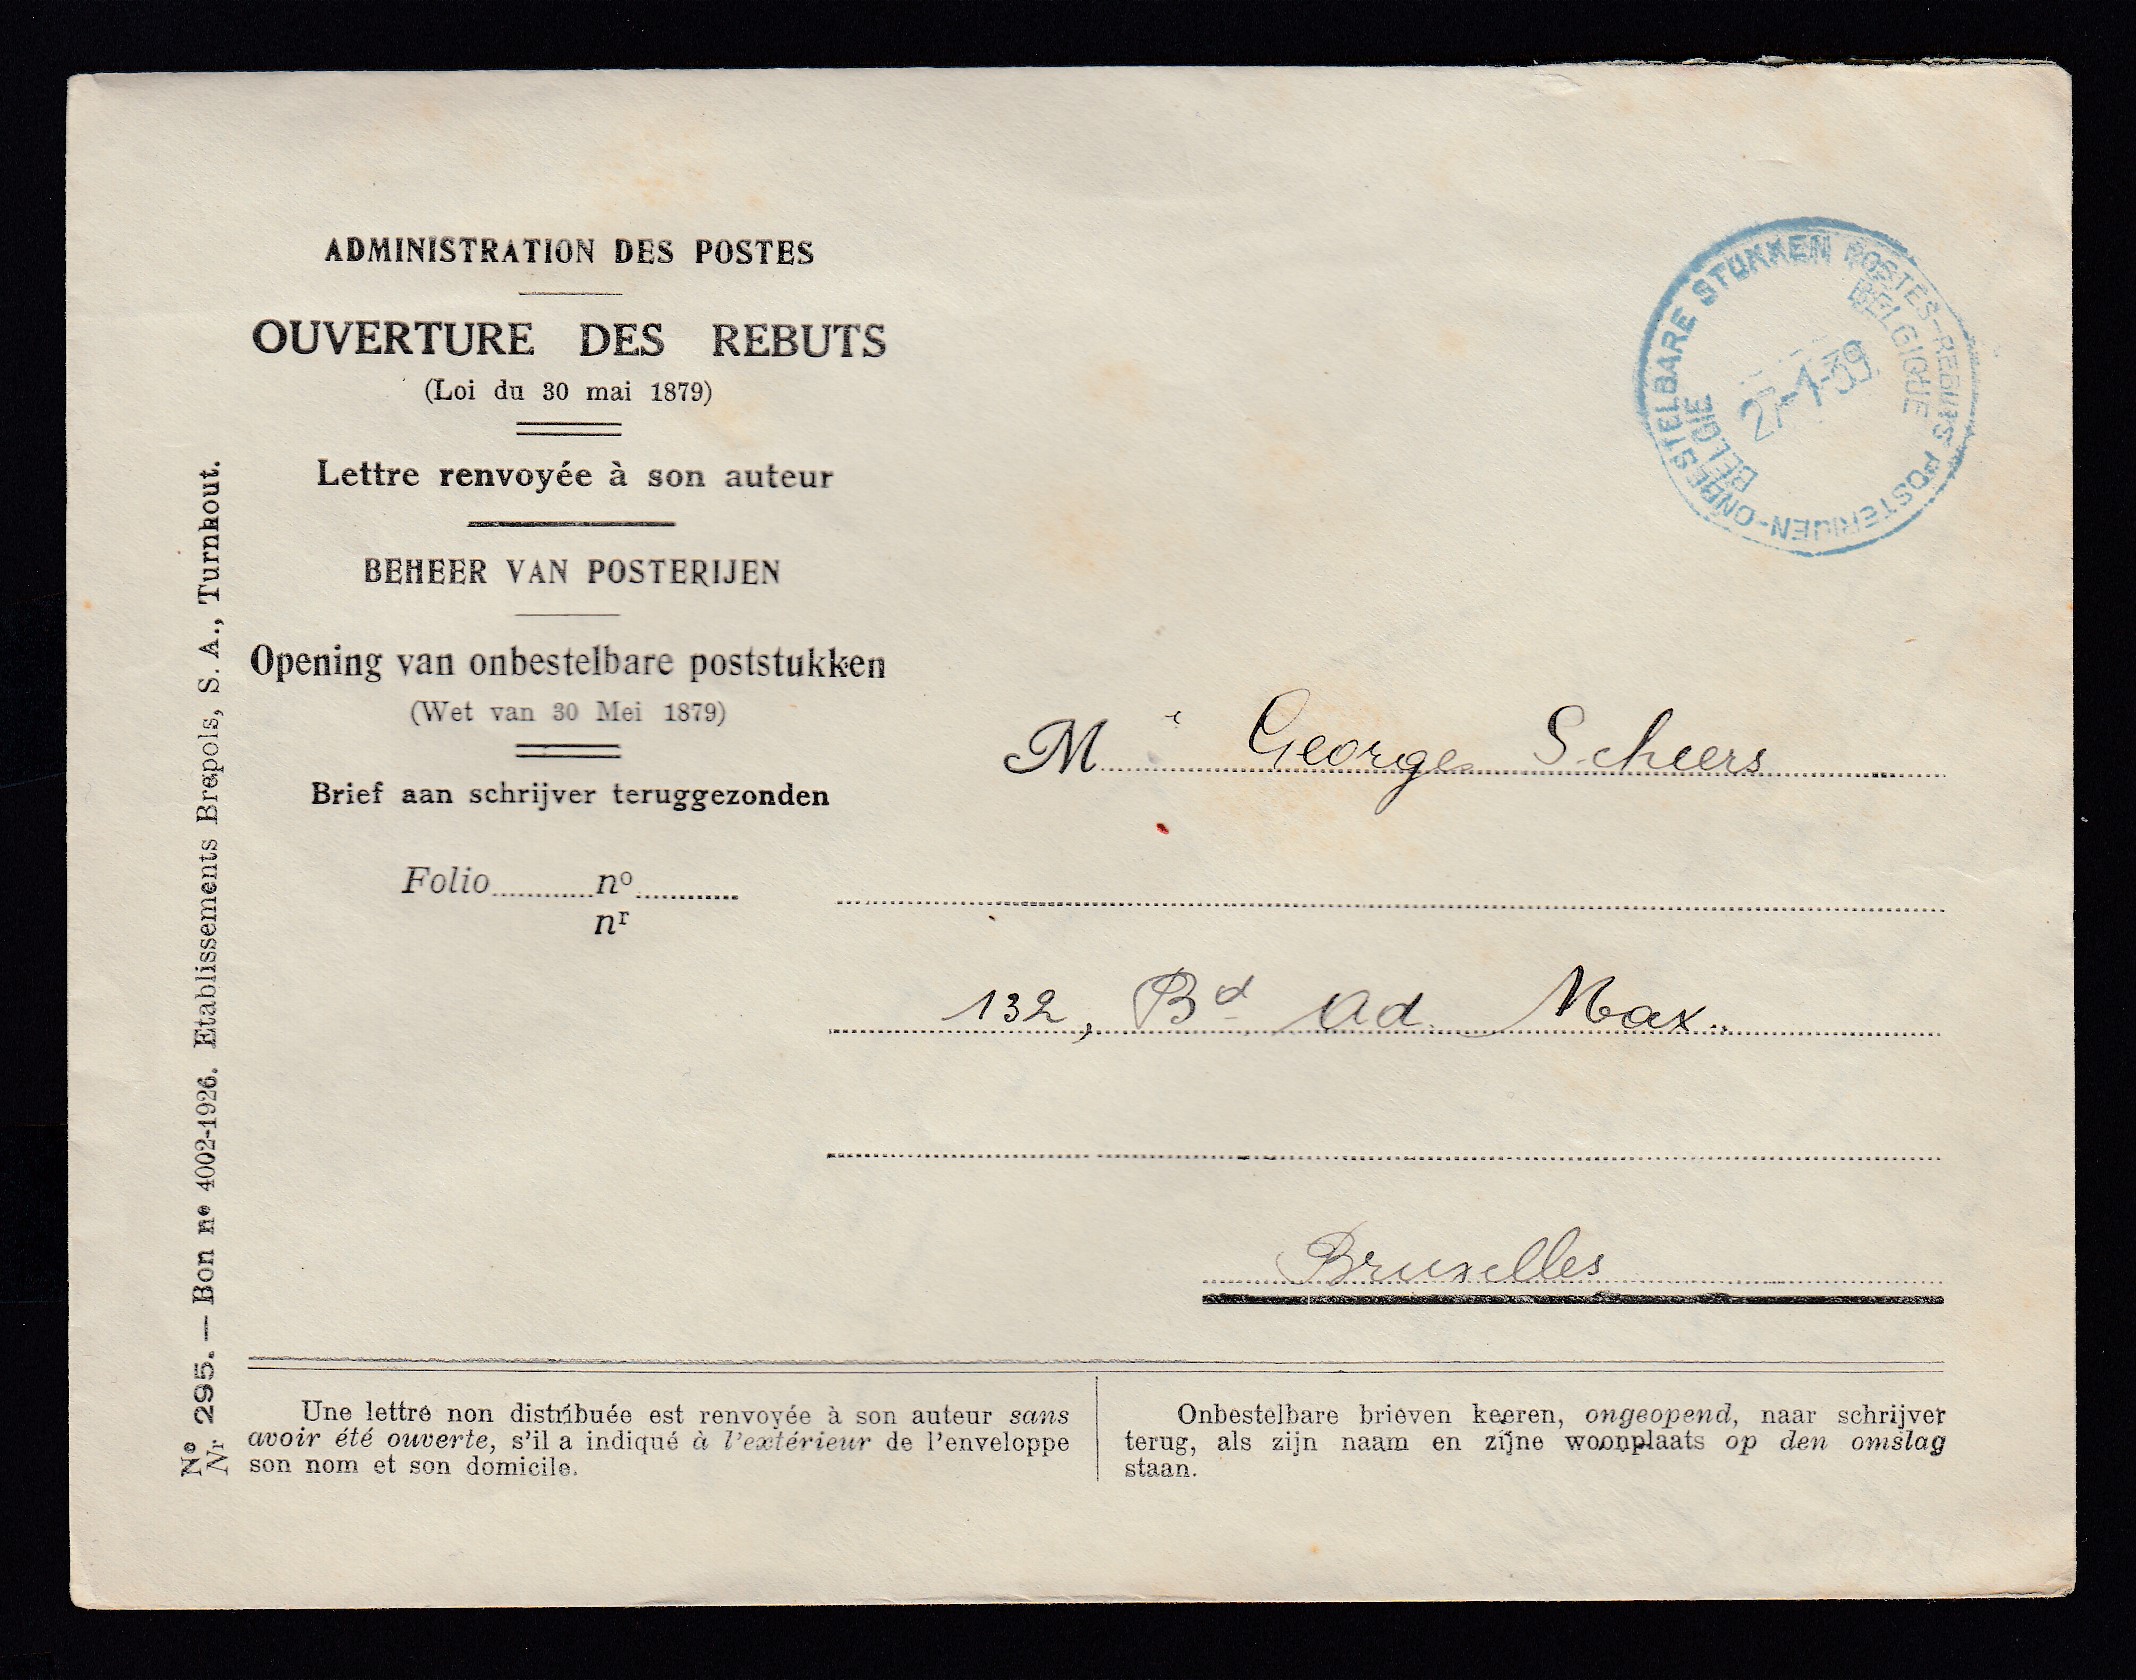 ADMINISTRATION DES POSTES
OUVERTURE DES REBUTS
(Loi du 30 mai 1879)
Lettre renvoyée à son auteur
BEHEER VAN POSTERIJEN
Opening van onbestelbare poststukken
(Wet van 30 Mei 1879)
Brief aan schrijver teruggezonden
Folio..........no..........
nr
POSTES-REBUTS POSTERIJEN-ONBESTELBARE STUKKEN
BELGIQUE
27-1-39
BELGIE
M r George Scheers
132, Bd Ad. Max.
Bruxelles
Une lettre non distribuée est renvoyée à son auteur sans
avoir été ouverte, s'il a indiqué à l'extérieur de l'enveloppe
son nom et son domicile.
Onbestelbare brieven keeren, ongeopend, naar schrijver
terug, als zijn naam en zijne woonplaats op den omslag
staan.
No Nr 295. — Bon no 4002-1926. Etablissements Brepols, S. A., Turnhout.